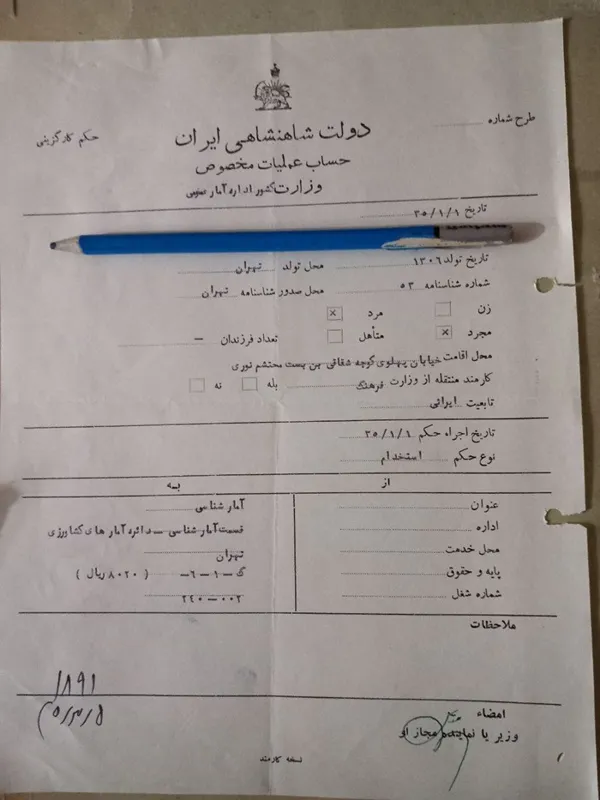 طرح شماره
حکم کارگزینی
دولت شاهنشاهی ایران
حساب عملیات مخصوص
وزارت کشور اداره آمار عمومی
تاریخ ۳۵/۱/۱
تاریخ تولد ۱۳۰۶ محل تولد تهران
شماره شناسنامه ۵۳ محل صدور شناسنامه تهران
زن مرد x
مجرد x متأهل تعداد فرزندان –
محل اقامت خیابان پهلوی کوچه شقاقی بن بست محتشم نوری
کارمند منتقله از وزارت فرهنگ بله نه
تابعیت ایرانی
تاریخ اجراء حکم ۳۵/۱/۱
نوع حکم استخدام
از به
عنوان آمار شناسی
اداره قسمت آمار شناسی – دائره آمار های کشاورزی
محل خدمت تهران
پایه و حقوق گ–۱–۶– (۸۰۲۰ ریال)
شماره شغل ۲۴۰–۰۰۲
ملاحظات
۱۸۹۱
امضاء
وزیر یا نماینده مجاز او
نسخه کارمند